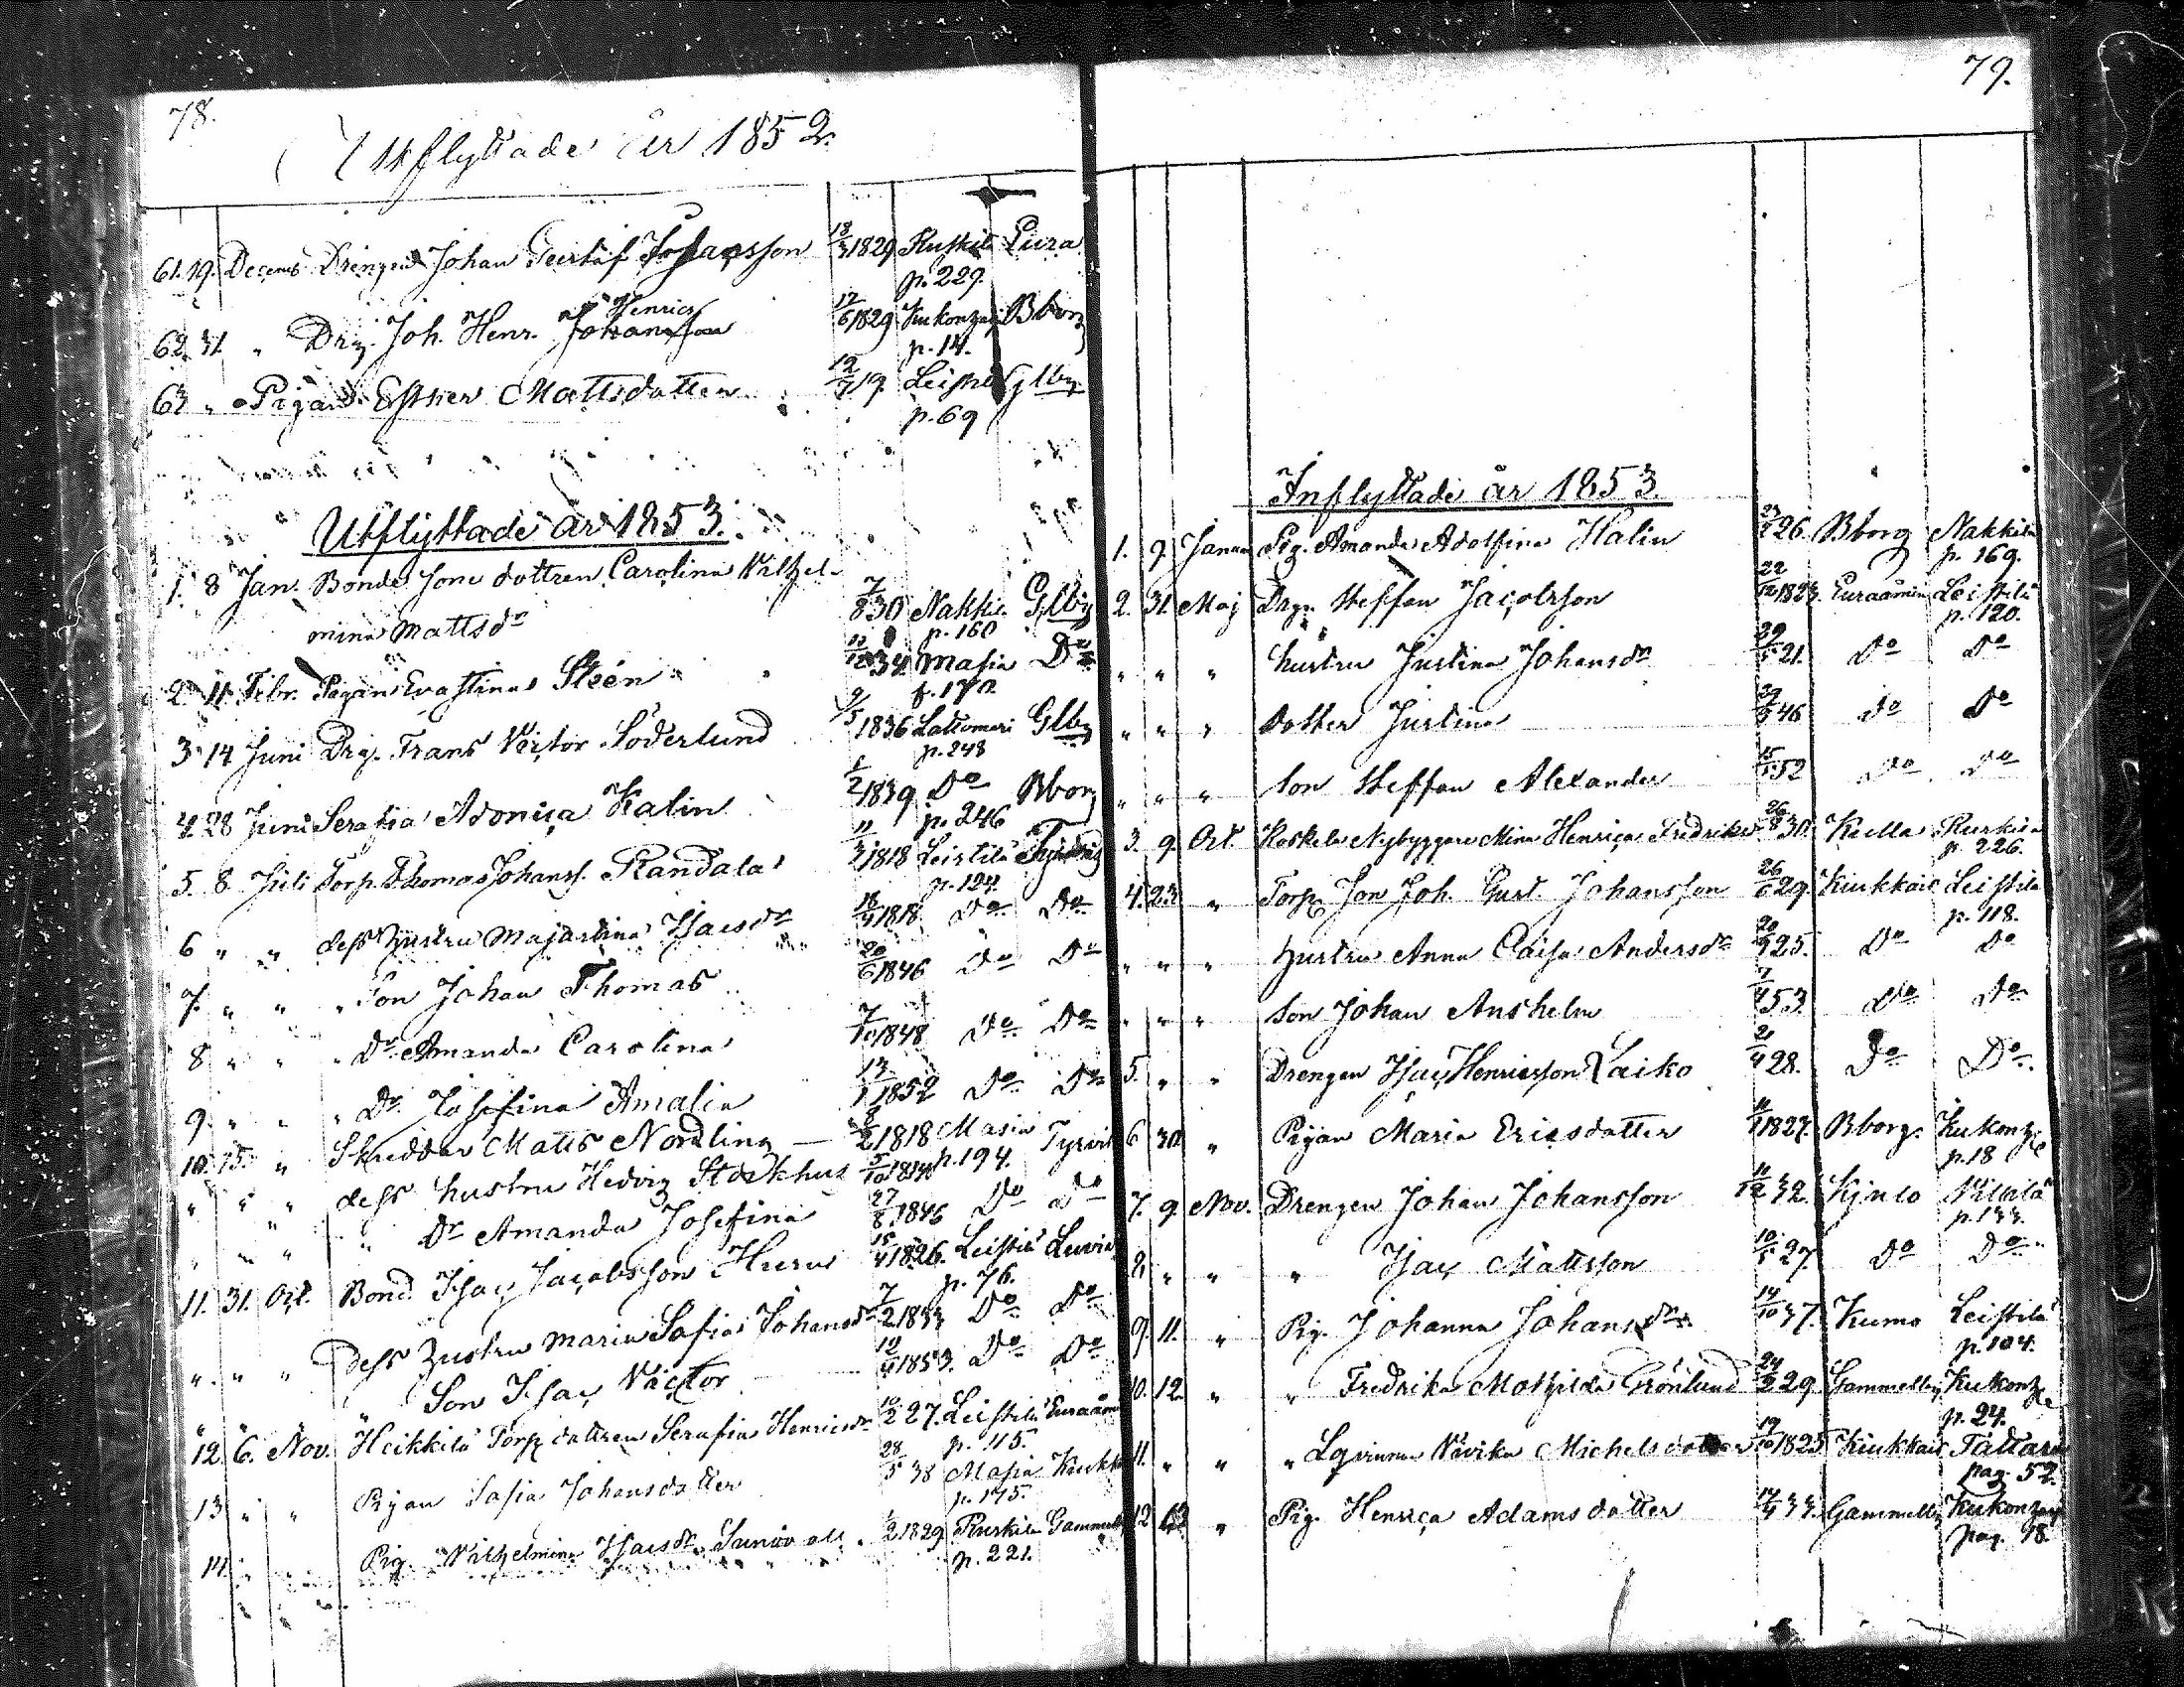 78.
Utflyttade år 1852.
61. 19. Decemb Drengen Johan Gustaf Johansson 18/3 1829 Ruskila Eura
p. 229.
Henrics
62. 31. " Drg. Joh. Henr. Johansson 17/6 1829 Kukonharj Bborg
p. 14.
63 " " Pigan Esther Mattsdotter 19. Leistilä Glby
p. 69
Utflyttade år 1853.
1. 8 Jan. Bonde Sone dottren Carolina Wilhel-
mina Mattsdr 7/8 30 Nakkila Glby
p. 160
2. 11. Febr. Pigan Eva Stina Steén 34. Masia Do
p. 170.
3. 14 Juni Drg. Frans Victor Söderlund 9/5 1836 Lattomeri Glby
p. 248
4. 28 Juni Serafia Adonica Kalin 1/2 1839 Do Bborg
p. 246
5. 8 Juli Torp. Thomas Johanss. Randala 11/3 1818 Leistilä Tyrvis
p. 124.
6 " " dess Hustru Maja Stina Isacsdr 18/4 1818 Do Do
7. " " " Son Johan Thomas 20/6 1846 Do Do
8 " " " Dr Amanda Carolina 7/10 1848 Do Do
9. " " " Dr Josefina Amalia 13/1 1852 Do Do
10. 15. " Skreddar Matts Nordling 8/2 1818 Masia Tyrvis
" " " dess hustru Hedvig Stockhus 5/10 p. 194.
" " " Dr Amanda Josefina 27/8 1846 Do Do
11. 31. Oct. Bond. Isac Jacobsson Hurru 15/4 1826. Leistilä Luvia
p. 76.
" " " Dess Hustru Maria Sofia Johansdr 7/2 1833 Do Do
" " " Son Isac Victor 1853. Do Do
12. 6. Nov. Heikkilä Torp. dottren Serafia Henricsdr 27. Leistilä Euraåm
p. 115.
13 " " Pigan Sofia Johansdotter 28/5 38 Masia Kiukk
p. 175.
14. " " Pig. Wilhelmina Isacsdr Sundvall 1/2 1829 Ruskila Gammelb
p. 221.
79.
Inflyttade år 1853.
1. 9. Januar Pig. Amanda Adolfina Halin 26. Bborg Nakkila
p. 169.
2. 31. Maj Drgn. Steffan Jacobsson 22/12 1823. Euraåminne Leistilä
p. 120.
" " " hustru Justina Johansdr 29/5 21. Do Do
" " " dotter Justina 46 Do Do
" " " Son Steffan Alexander 52 Do Do
3. 9. Oct. Koskela Nybyggare Mina Henrica Fredriksdr 26/8 30. Kiulla Ruskila
p. 226.
4. 23. " Torp. Son Joh. Gust. Johansson 26/6 29. Kiukkais Leistilä
p. 118.
" " " hustru Anna Caisa Andersdr 20/9 25. Do Do
" " " Son Johan Anshelm 7/4 53. Do Do
5. " " Drengen Isac Henricsson Laiko 21/4 28. Do Do
6. 30. " Pigan Maria Ericsdotter 11/1 1827. Bborg. Kukonhr
p. 18
7. 9. Nov. Drengen Johan Johansson 32. Kjulo Willilä
p. 133.
8. " " " Isac Mattsson 27. Do Do
9. 11. " Pig. Johanna Johansdr 14/10 37. Kumo Leistilä
p. 104.
10. 12. " " Fredrika Mathilda Grönlund 24/2 29. Gammelby Kukonh
p. 24.
11. " " " Lqvinna Wävika Michelsdotter 19/10 1825 Kiukkais Tattara
pag. 52.
12 " Pig. Henrica Adamsdotter 33. Gammelby Kukonharj
pag. 18.